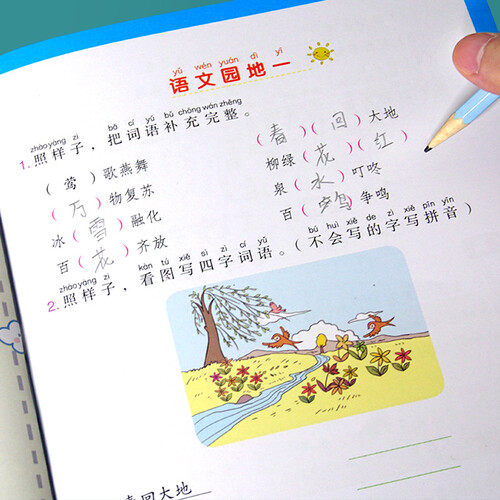 yǔ wén yuán dì yī
语文园地一
zhào yàng zi bǎ cí yǔ bǔ chōng wán zhěng
1. 照样子，把词语补充完整。
（莺）歌燕舞 （春）（回）大地
（万）物复苏 柳绿（花）（红）
冰（雪）融化 泉（水）叮咚
百（花）齐放 百（ ）争鸣
zhào yàng zi kàn tú xiě sì zì cí yǔ bú huì xiě de zì xiě pīn yīn
2. 照样子，看图写四字词语。（不会写的字写拼音）
春回大地